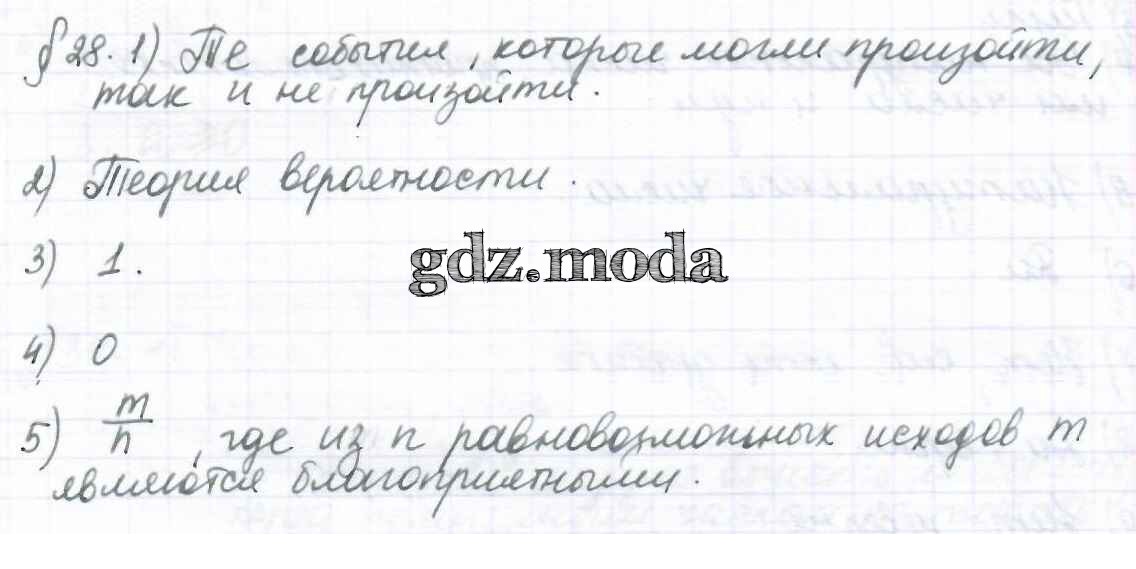 § 28. 1) Те события, которые могли произойти,
так и не произойти.
2) Теория вероятности.
3) 1.
gdz.moda
4) 0
5) m/n, где из n равновозможных исходов m
являются благоприятными.